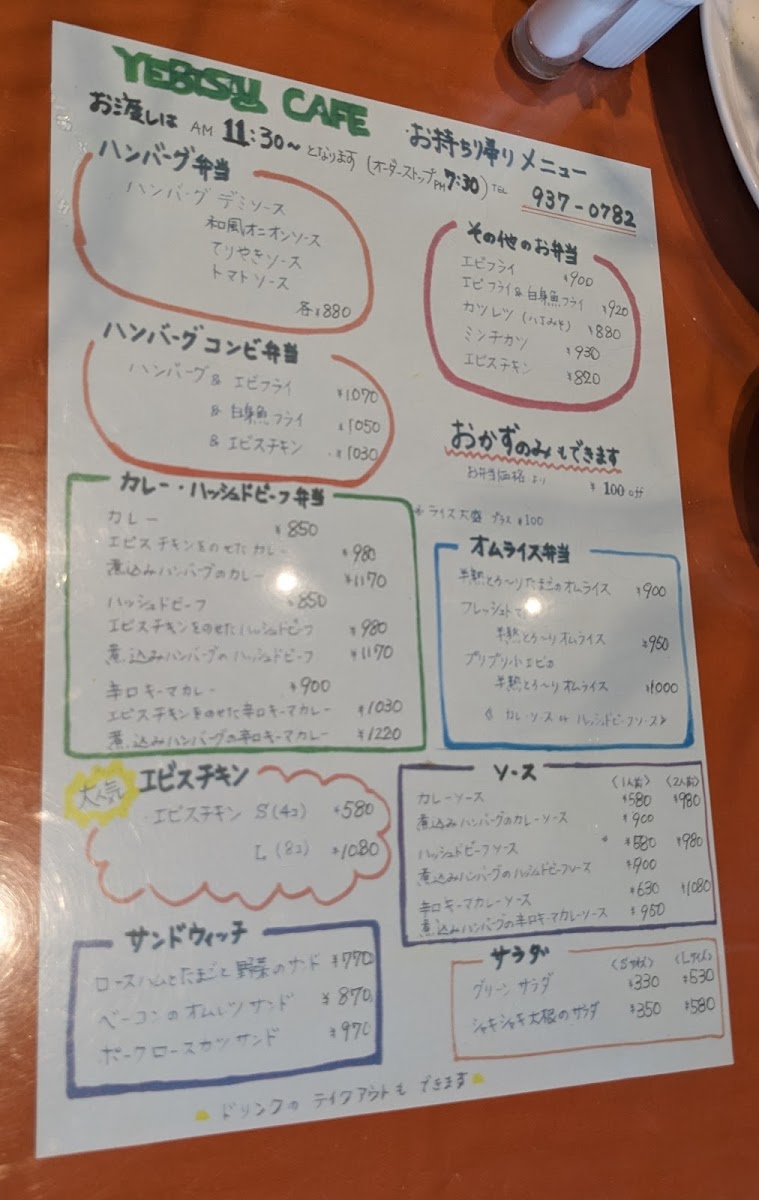 YEBISU CAFE
お持ち帰りメニュー
お渡しは AM 11:30～ となります (オーダーストップ PM 7:30) TEL 937-0782
ハンバーグ弁当
ハンバーグ デミソース
和風オニオンソース
てりやきソース
トマトソース
各¥880
ハンバーグコンビ弁当
ハンバーグ & エビフライ ¥1070
& 白身魚フライ ¥1050
& エビスチキン ¥1030
カレー・ハッシュドビーフ弁当
カレー ¥850
エビスチキンをのせたカレー ¥980
煮込みハンバーグのカレー ¥1170
ハッシュドビーフ ¥850
エビスチキンをのせたハッシュドビーフ ¥980
煮込みハンバーグのハッシュドビーフ ¥1170
辛口キーマカレー ¥900
エビスチキンをのせた辛口キーマカレー ¥1030
煮込みハンバーグの辛口キーマカレー ¥1220
大人気
エビスチキン
エビスチキン S(4コ) ¥580
L(8コ) ¥1080
サンドウィッチ
ロースハムとたまごと野菜のサンド ¥770
ベーコンのオムレツサンド ¥870
ポークロースカツサンド ¥970
その他のお弁当
エビフライ ¥900
エビフライ&白身魚フライ ¥920
カツレツ ¥880
ミンチカツ ¥930
エビスチキン ¥820
おかずのみもできます
お弁当価格より ¥100off
ライス大盛 プラス ¥100
オムライス弁当
半熟とろ～りたまごのオムライス ¥900
フレッシュト
半熟とろ～りオムライス ¥950
プリプリ小エビの
半熟とろ～りオムライス ¥1000
カレーソース or ハッシュドビーフソース
ソース
〈1人前〉 〈2人前〉
カレーソース ¥580 ¥980
煮込みハンバーグのカレーソース ¥900
ハッシュドビーフソース ¥580 ¥980
煮込みハンバーグのハッシュドビーフソース ¥900
辛口キーマカレーソース ¥630 ¥1080
煮込みハンバーグの辛口キーマカレーソース ¥950
サラダ
〈Sサイズ〉 〈Lサイズ〉
グリーンサラダ ¥330 ¥530
シャキシャキ大根のサラダ ¥350 ¥580
ドリンクのテイクアウトもできます